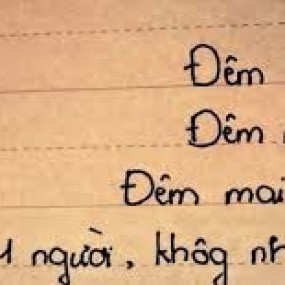 Đêm
Đêm
Đêm mai
người, khôg nh